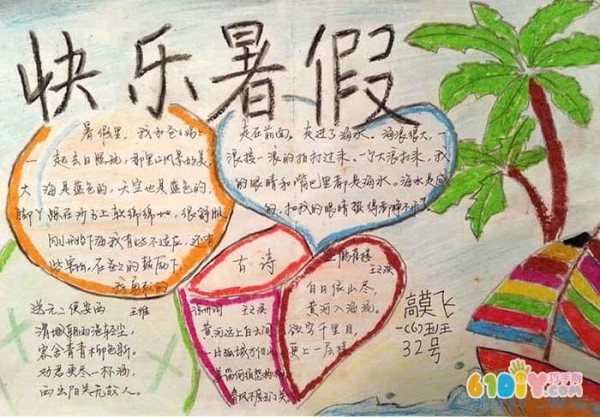 快乐暑假
暑假里，我和爸爸妈妈
一起去日照玩，那里的风景很美。
大海是蓝色的，天空也是蓝色的，
脚丫踩在沙子上软绵绵的，很舒服。
刚开始下海我有些不适应，还有
些害怕，在爸爸的鼓励下，
我勇敢的
走在前面，走进了海水。海浪很大，一
浪接一浪的拍打过来，一个大浪打来，我
的眼睛和嘴巴里都是海水。海水是咸
的，把我的眼睛
古诗
送元二使安西
王维
渭城朝雨浥轻尘，
客舍青青柳色新。
劝君更尽一杯酒，
西出阳关无故人。
凉州词
王之涣
黄河远上白云间
一片孤城万仞山
春风不度玉门关
登鹳雀楼
王之涣
白日依山尽，
黄河入海流。
欲穷千里目，
更上一层楼
高莫飞
一(6)班
32号
61DIY巧手网
.com